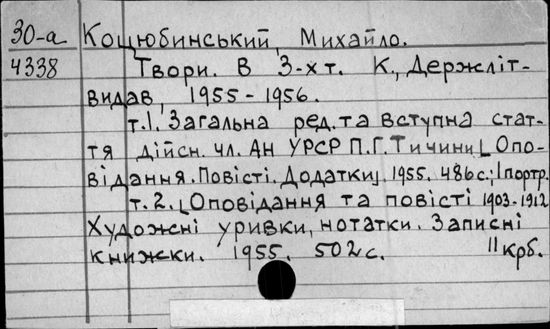 30-а Коцюбинський, Михайло.
4338 Твори. В 3-х т. К., Держліт-
видав, 1955-1956.
т.1. Загальна ред. та вступна стат-
тя дійсн. чл. АН УРСР П.Г. Тичини [Опо-
відання. Повісті. Додатки] 1955. 486 с.; 1 портр.
т.2. [Оповідання та повісті 1903-1912
Художні уривки, нотатки. Записні
книжки. 1955. 502 с. 11 крб.